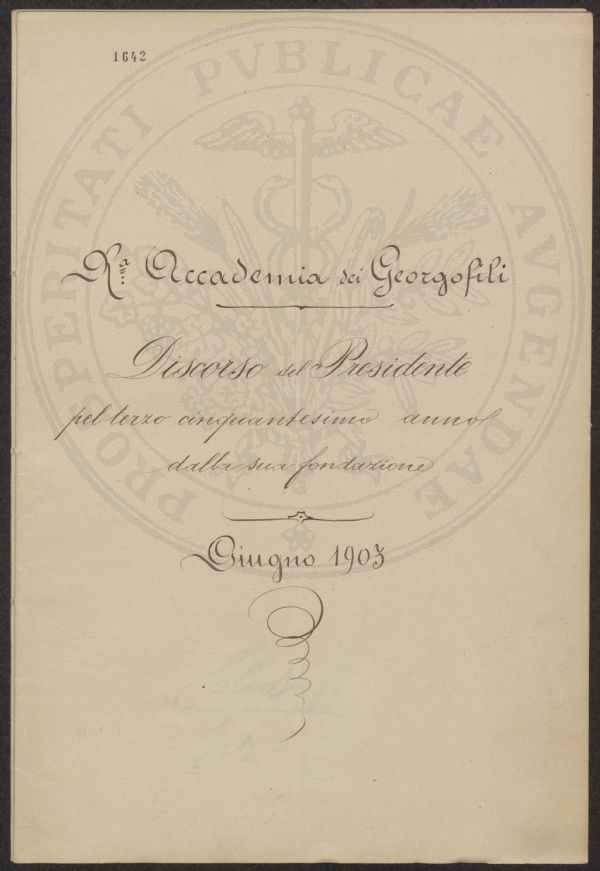 1642
PROSPERITATI PVBLICAE AVGENDAE
R.ª Accademia dei Georgofili
Discorso del Presidente
pel terzo cinquantesimo anno
dalla sua fondazione
Giugno 1903